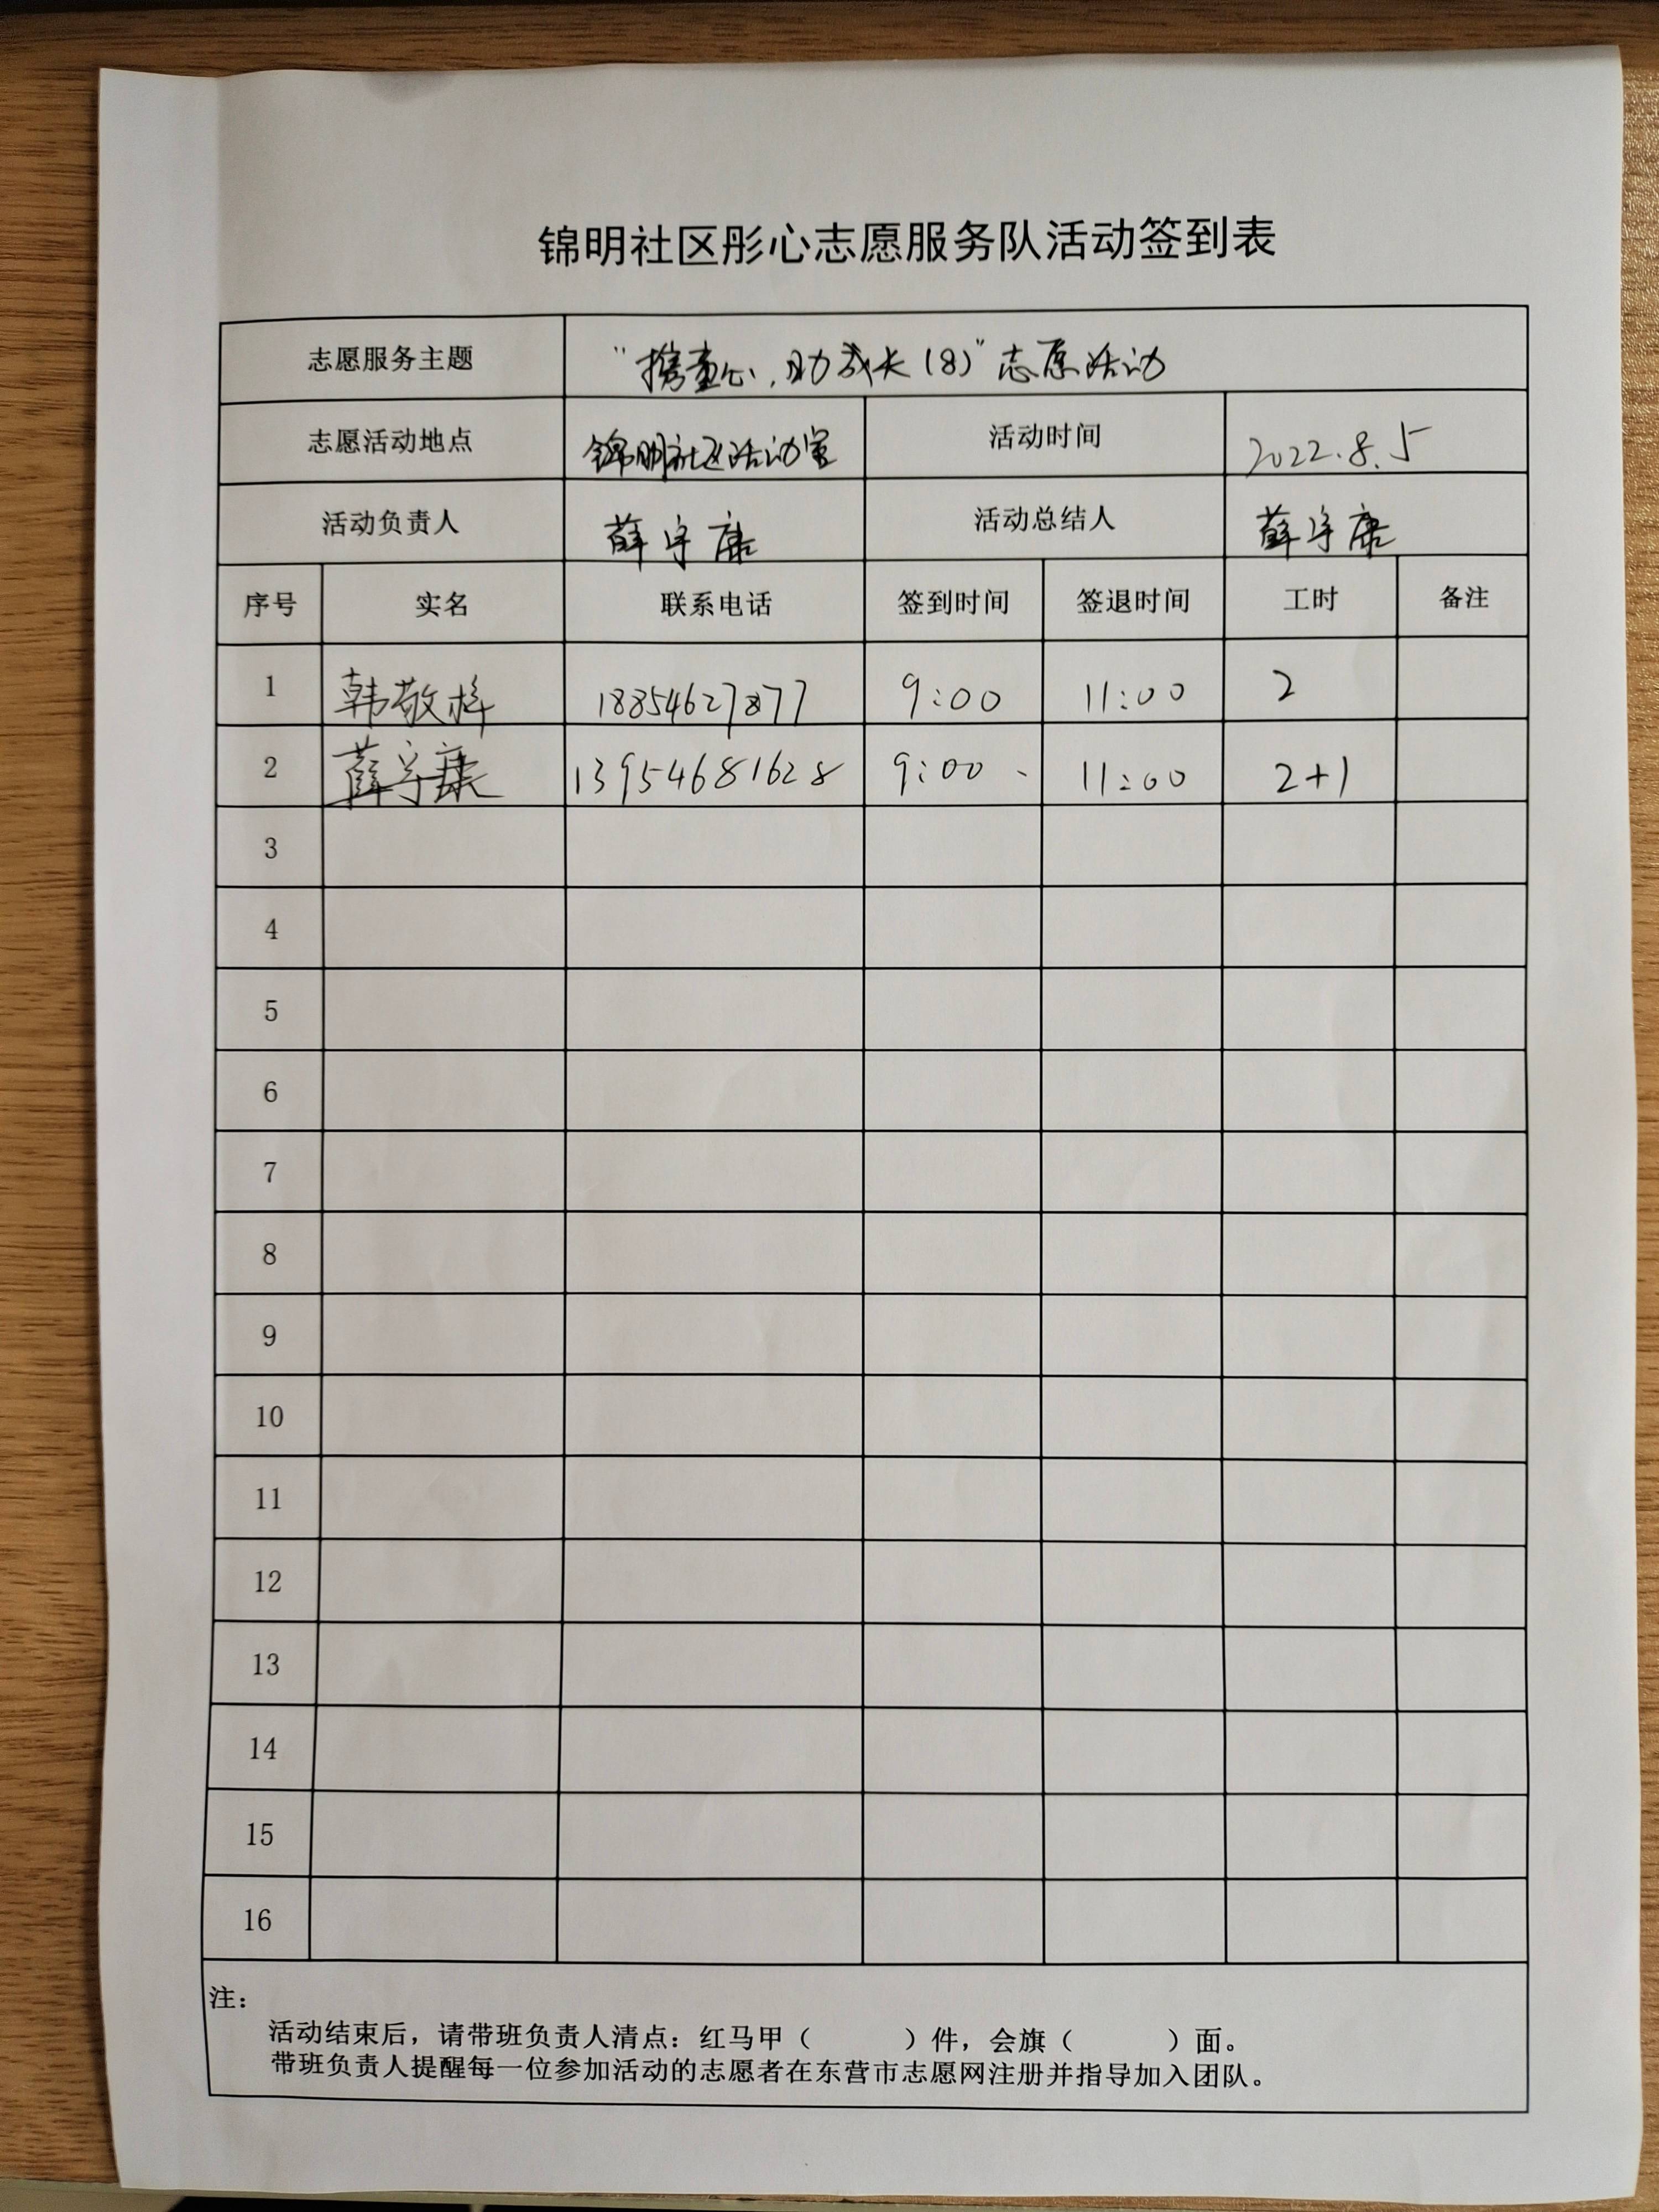 锦明社区彤心志愿服务队活动签到表
志愿服务主题 "携童心,助成长(8)"志愿活动
志愿活动地点 锦明社区活动室 活动时间 2022.8.5
活动负责人 薛守康 活动总结人 薛守康
序号 实名 联系电话 签到时间 签退时间 工时 备注
1 韩敬 18854627877 9:00 11:00 2
2 薛守康 13954681628 9:00 11:00 2+1
3
4
5
6
7
8
9
10
11
12
13
14
15
16
注:
活动结束后,请带班负责人清点:红马甲( )件,会旗( )面。
带班负责人提醒每一位参加活动的志愿者在东营市志愿网注册并指导加入团队。